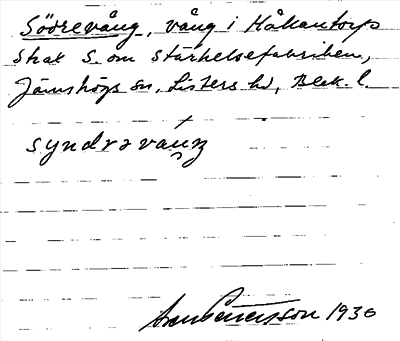 Södrevång, vång i Håkantorps
skat S. om stärkelsefabriken,
Jämshögs sn, Listers hd, Blek. l.
syndrəvaŋ
1930